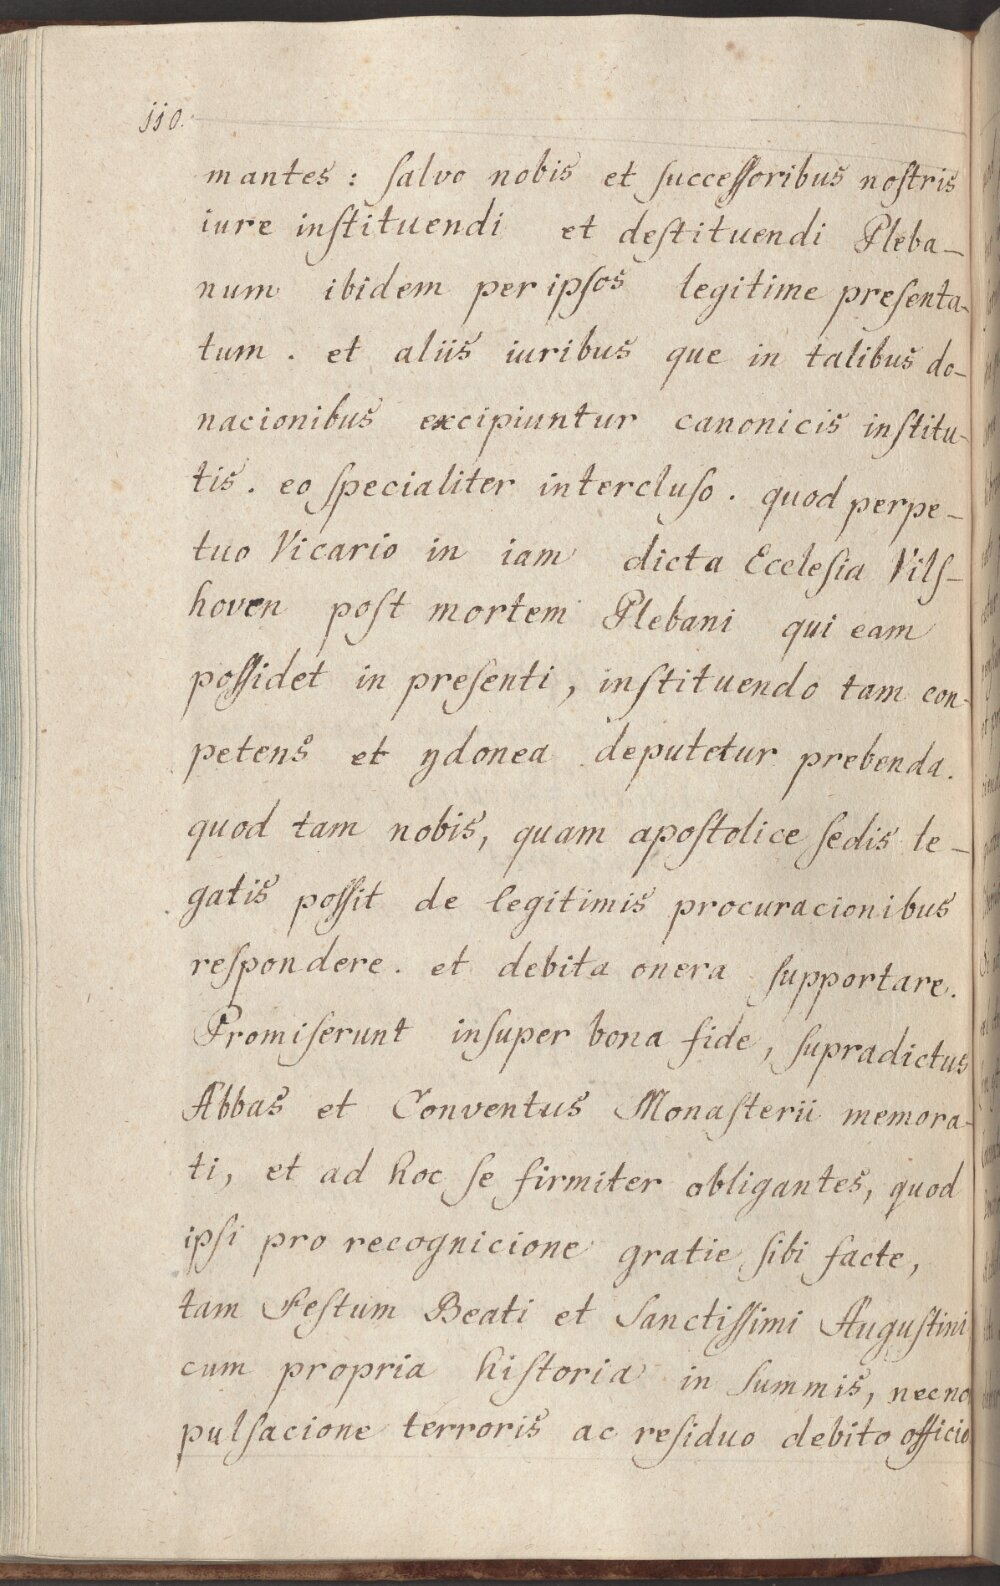 110.
mantes: salvo nobis et successoribus nostris
iure instituendi et destituendi Pleba-
num ibidem per ipsos legitime presenta-
tum. et aliis iuribus que in talibus do-
nacionibus excipiuntur canonicis institu-
tis. eo specialiter intercluso. quod perpe-
tuo Vicario in iam dicta Ecclesia Vils-
hoven post mortem Plebani qui eam
possidet in presenti, instituendo tam con-
petens et ydonea deputetur prebenda.
quod tam nobis, quam apostolice sedis le-
gatis possit de legitimis procuracionibus
respondere. et debita onera supportare.
Promiserunt insuper bona fide, supradictus
Abbas et Conventus Monasterii memora-
ti, et ad hoc se firmiter obligantes, quod
ipsi pro recognicione gratie sibi facte,
tam Festum Beati et Sanctissimi Augustini
cum propria historia in summis, necno
pulsacione terroris ac residuo debito officio